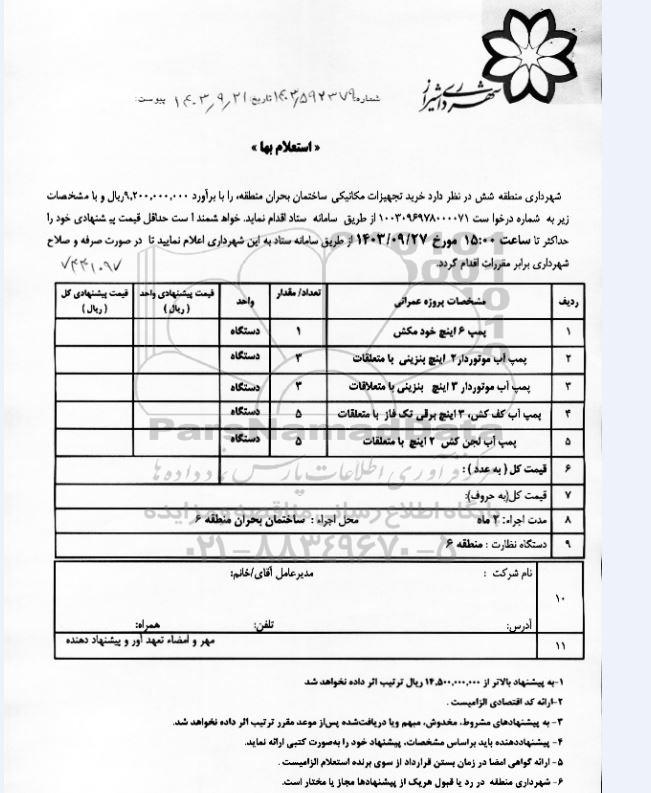 شهرداری شیراز
شماره ۱۴۰۳/۵۹۲۳۷۹ تاریخ: ۱۴۰۳/۹/۲۱ پیوست:
« استعلام بها »
شهرداری منطقه شش در نظر دارد خرید تجهیزات مکانیکی ساختمان بحران منطقه، را با برآورد ۹,۲۰۰,۰۰۰,۰۰۰ریال و با مشخصات
زیر به شماره درخوا ست ۱۰۰۳۰۹۶۹۷۸۰۰۰۰۷۱ از طریق سامانه ستاد اقدام نماید. خواه شمند ا ست حداقل قیمت پی شنهادی خود را
حداکثر تا ساعت ۱۵:۰۰ مورخ ۱۴۰۳/۰۹/۲۷ از طریق سامانه ستاد به این شهرداری اعلام نمایید تا در صورت صرفه و صلاح
شهرداری برابر مقررات اقدام گردد.
ردیف مشخصات پروژه عمرانی تعداد/ مقدار واحد قیمت پیشنهادی واحد ( ریال ) قیمت پیشنهادی کل ( ریال )
۱ پمپ ۶ اینچ خود مکش ۱ دستگاه
۲ پمپ آب موتوردار۲ اینچ بنزینی با متعلقات ۳ دستگاه
۳ پمپ آب موتوردار ۳ اینچ بنزینی با متعلاقات ۳ دستگاه
۴ پمپ آب کف کش، ۳ اینچ برقی تک فاز با متعلقات ۵ دستگاه
۵ پمپ آب لجن کش ۲ اینچ با متعلقات ۵ دستگاه
ParsNamadData
۶ قیمت کل ( به عدد ) :
مرکز فرآوری اطلاعات پارس نماد داده ها
۷ قیمت کل(به حروف):
پایگاه اطلاع رسانی مناقصه و مزایده
۸ مدت اجراء: ۲ ماه محل اجراء : ساختمان بحران منطقه ۶
۹ دستگاه نظارت : منطقه ۶
۰۲۱-۸۸۳۴۹۶۷۰-۵
۱۰ نام شرکت : مدیرعامل آقای/خانم:
آدرس: تلفن: همراه:
۱۱ مهر و امضاء تعهد آور و پیشنهاد دهنده
۱-به پیشنهاد بالاتر از ۱۴,۵۰۰,۰۰۰,۰۰۰ ریال ترتیب اثر داده نخواهد شد
۲-ارائه کد اقتصادی الزامیست .
۳- به پیشنهادهای مشروط، مخدوش، مبهم ویا دریافت‌شده پس‌از موعد مقرر ترتیب اثر داده نخواهد شد.
۴- پیشنهاددهنده باید براساس مشخصات، پیشنهاد خود را به‌صورت کتبی ارائه نماید.
۵- ارائه گواهی امضا در زمان بستن قرارداد از سوی برنده استعلام الزامیست .
۶- شهرداری منطقه در رد یا قبول هریک از پیشنهادها مجاز یا مختار است.